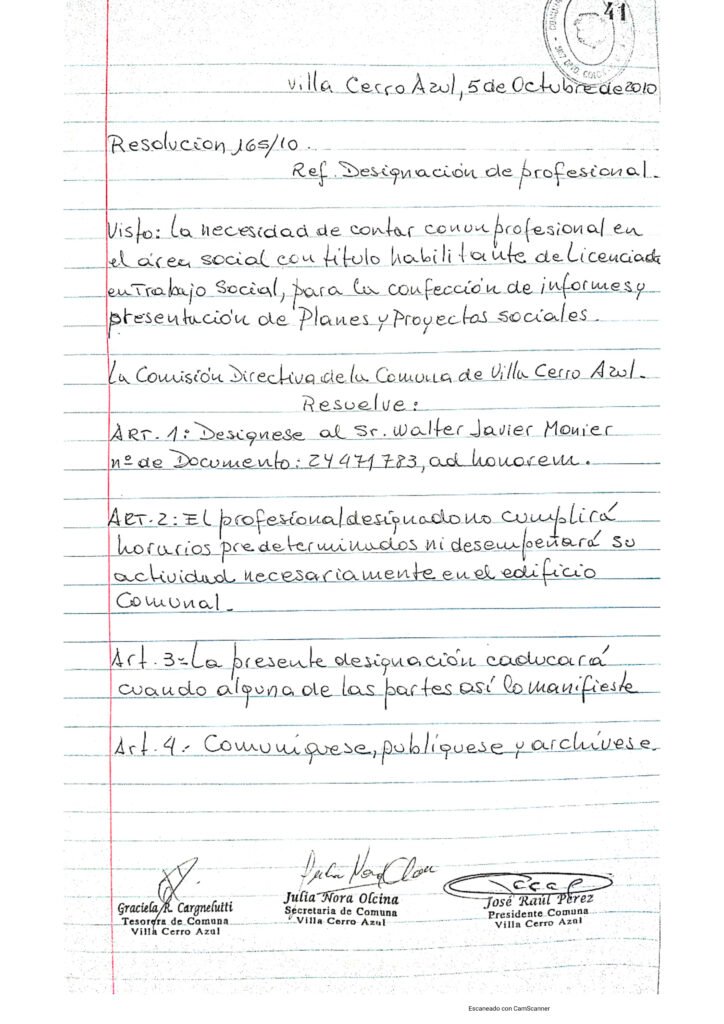 41
Villa Cerro Azul, 5 de Octubre de 2010
Resolucion 165/10.
Ref. Designación de profesional.
Visto: La necesidad de contar con un profesional en
el área social con título habilitante de Licenciado
en Trabajo Social, para la confección de informes y
presentación de Planes y Proyectos sociales.
La Comisión Directiva de la Comuna de Villa Cerro Azul.
Resuelve:
ART. 1: Desígnese al Sr. Walter Javier Monier
nº de Documento: 24471783, ad honorem.
ART. 2: El profesional designado no cumplirá
horarios predeterminados ni desempeñará su
actividad necesariamente en el edificio
Comunal.
Art. 3= La presente designación caducará
cuando alguna de las partes así lo manifieste
Art. 4.- Comuníquese, publíquese y archívese.
Graciela R. Cargnelutti
Tesorera de Comuna
Villa Cerro Azul
Julia Nora Olcina
Secretaria de Comuna
Villa Cerro Azul
José Raúl Pérez
Presidente Comuna
Villa Cerro Azul
Escaneado con CamScanner